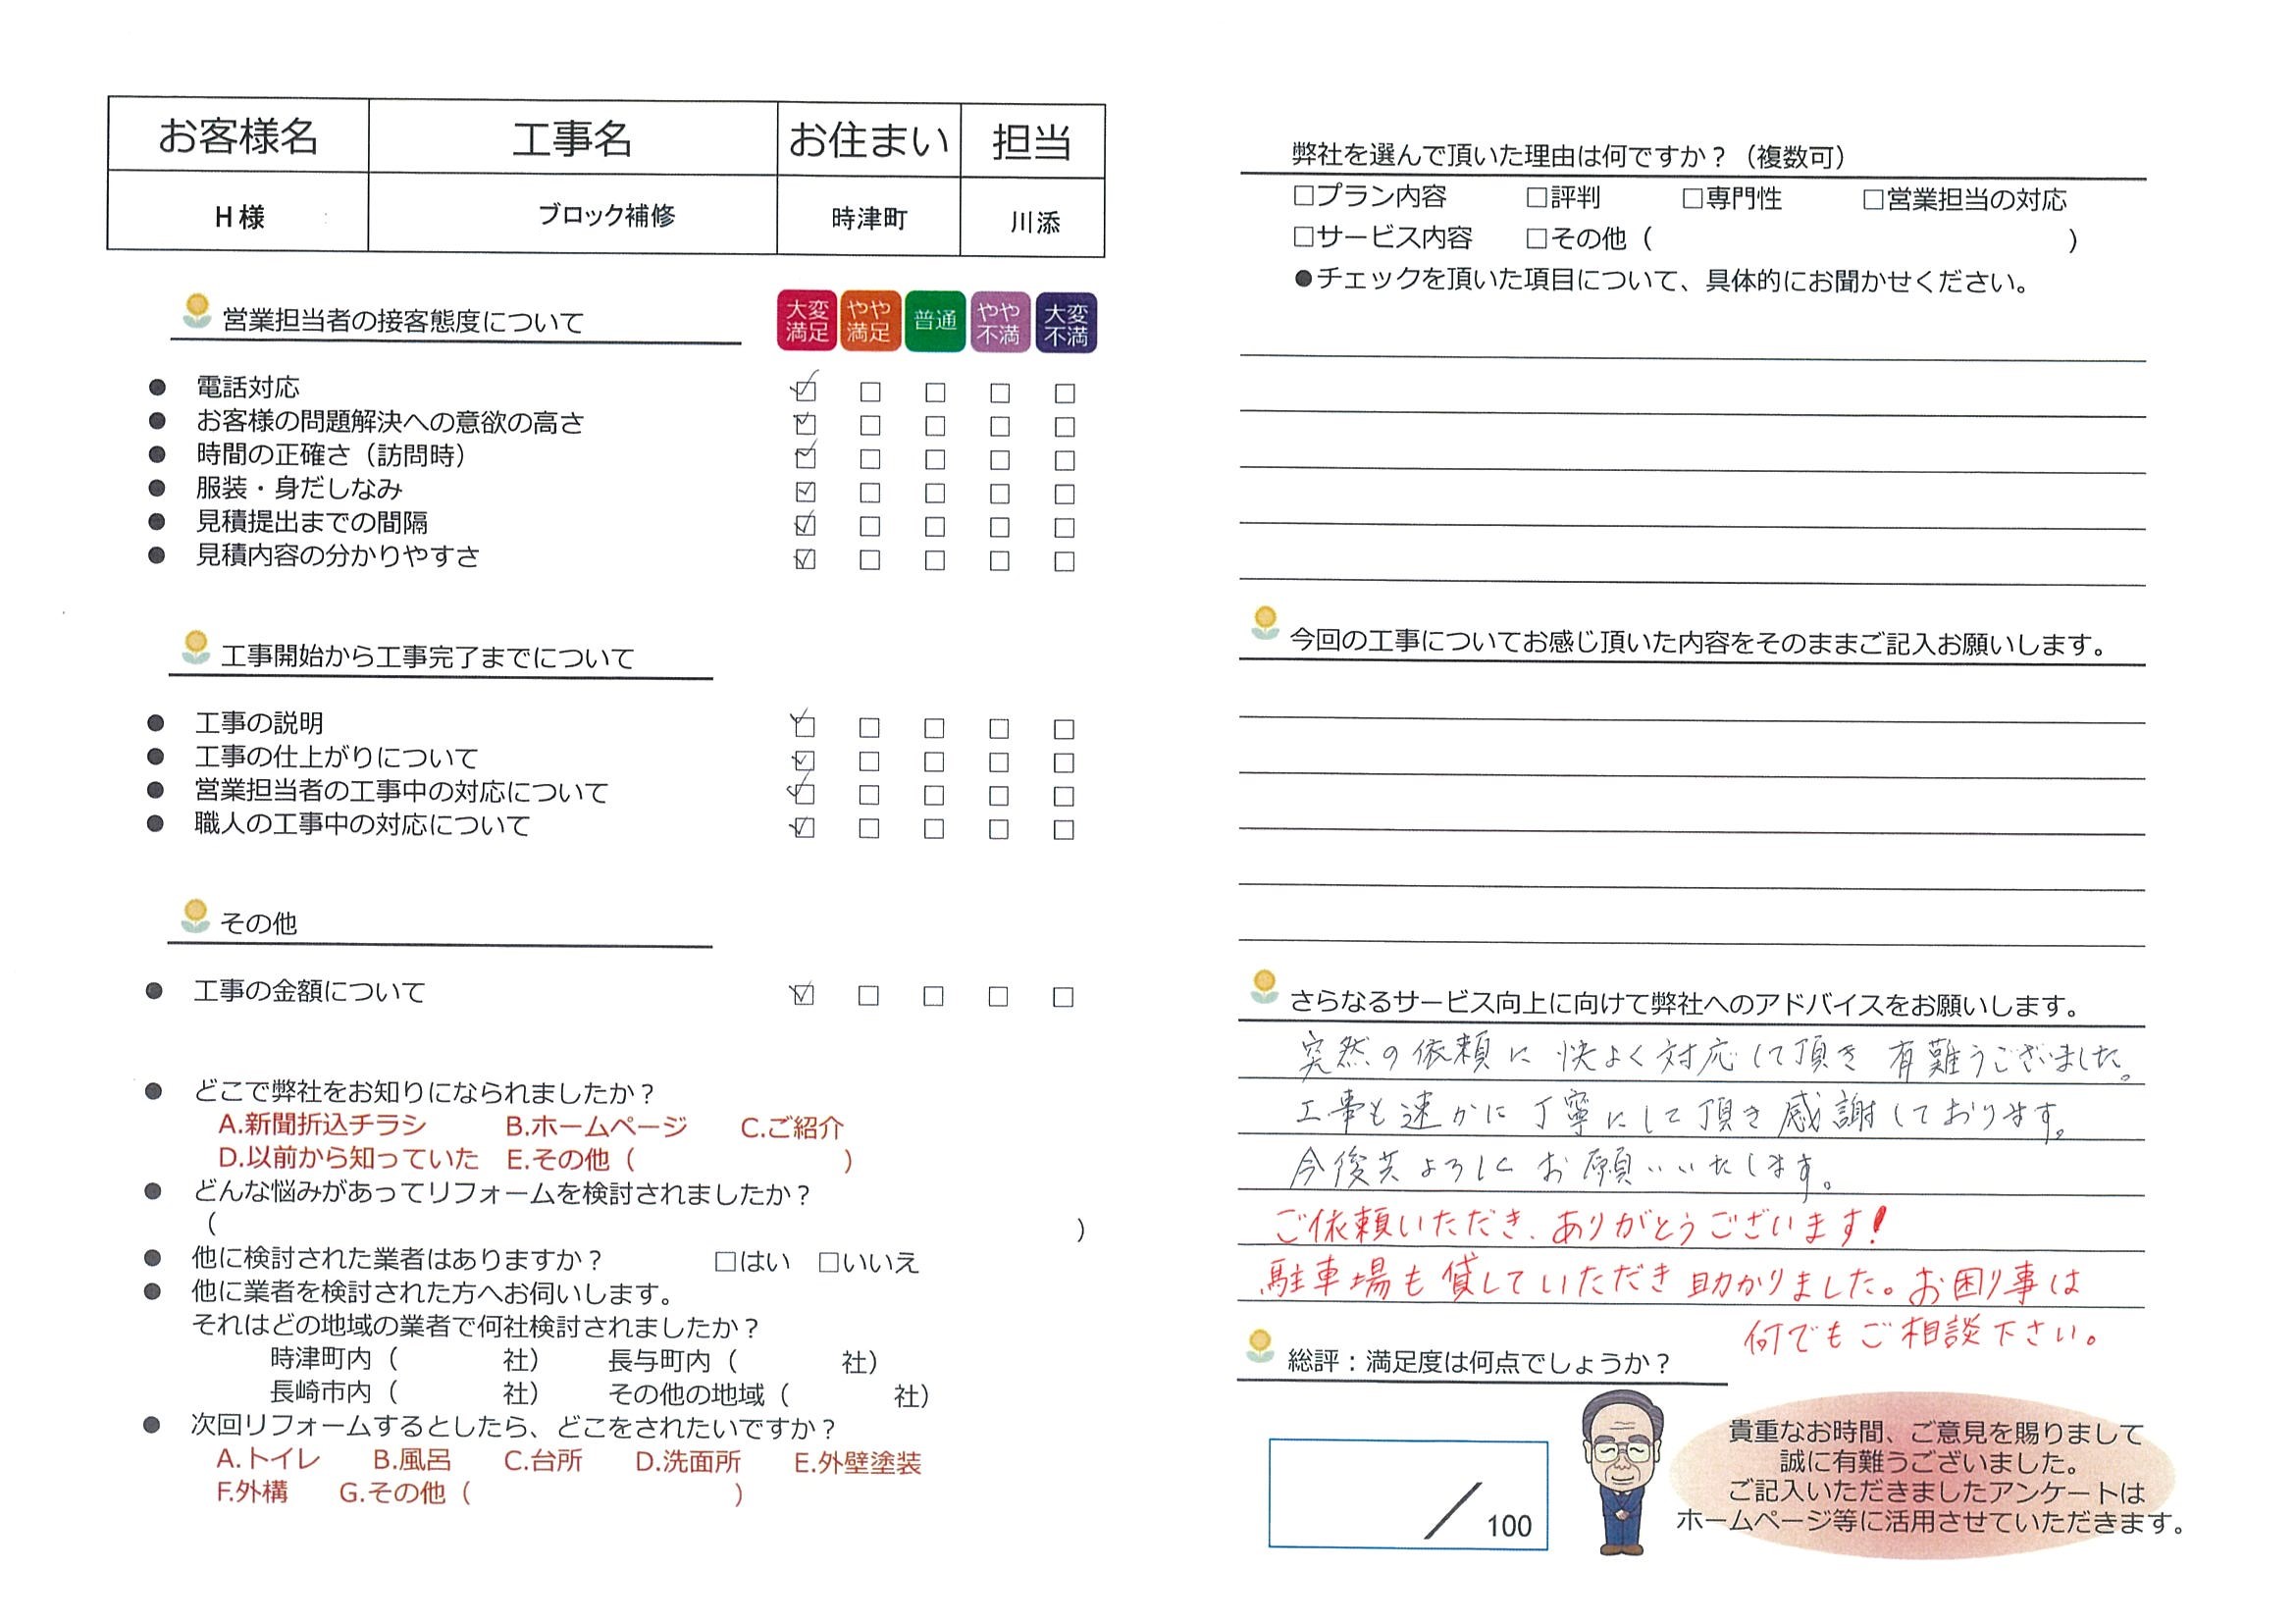 お客様名 工事名 お住まい 担当
H様 ブロック補修 時津町 川添
営業担当者の接客態度について
大変満足 やや満足 普通 やや不満 大変不満
● 電話対応 ☑ □ □ □ □
● お客様の問題解決への意欲の高さ ☑ □ □ □ □
● 時間の正確さ（訪問時） ☑ □ □ □ □
● 服装・身だしなみ ☑ □ □ □ □
● 見積提出までの間隔 ☑ □ □ □ □
● 見積内容の分かりやすさ ☑ □ □ □ □
工事開始から工事完了までについて
● 工事の説明 ☑ □ □ □ □
● 工事の仕上がりについて ☑ □ □ □ □
● 営業担当者の工事中の対応について ☑ □ □ □ □
● 職人の工事中の対応について ☑ □ □ □ □
その他
● 工事の金額について ☑ □ □ □ □
● どこで弊社をお知りになられましたか？
A.新聞折込チラシ B.ホームページ C.ご紹介
D.以前から知っていた E.その他（ ）
● どんな悩みがあってリフォームを検討されましたか？
（ ）
● 他に検討された業者はありますか？ □はい □いいえ
● 他に業者を検討された方へお伺いします。
それはどの地域の業者で何社検討されましたか？
時津町内（ 社） 長与町内（ 社）
長崎市内（ 社） その他の地域（ 社）
● 次回リフォームするとしたら、どこをされたいですか？
A.トイレ B.風呂 C.台所 D.洗面所 E.外壁塗装
F.外構 G.その他（ ）
弊社を選んで頂いた理由は何ですか？（複数可）
□プラン内容 □評判 □専門性 □営業担当の対応
□サービス内容 □その他（ ）
●チェックを頂いた項目について、具体的にお聞かせください。
今回の工事についてお感じ頂いた内容をそのままご記入お願いします。
さらなるサービス向上に向けて弊社へのアドバイスをお願いします。
突然の依頼に快よく対応して頂き有難うございました。
工事も速かに丁寧にして頂き感謝しております。
今後共よろしくお願いいたします。
ご依頼いただき、ありがとうございます！
駐車場も貸していただき助かりました。お困り事は
何でもご相談下さい。
総評：満足度は何点でしょうか？
／100
貴重なお時間、ご意見を賜りまして
誠に有難うございました。
ご記入いただきましたアンケートは
ホームページ等に活用させていただきます。